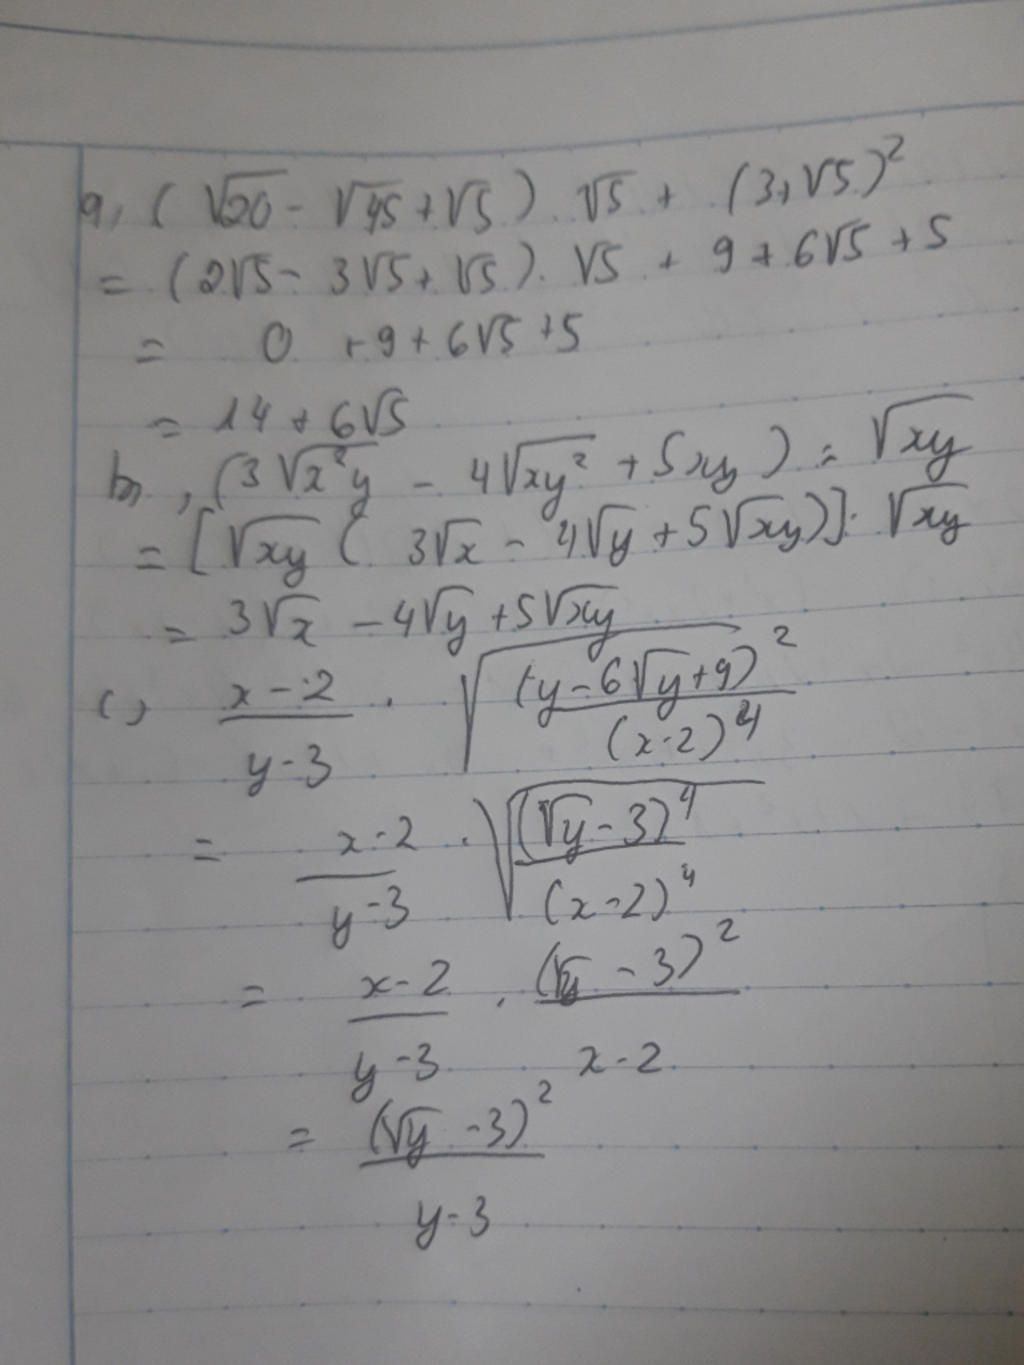 a, (√20 - √45 + √5) . √5 + (3+√5)²
= (2√5 - 3√5 + √5) . √5 + 9 + 6√5 + 5
= 0 + 9 + 6√5 + 5
= 14 + 6√5
b, (3√x²y - 4√xy² + 5xy) : √xy
= [√xy (3√x - 4√y + 5√xy)] : √xy
= 3√x - 4√y + 5√xy
c, (x-2)/(y-3) . √((y-6√y+9)²/(x-2)⁴)
= (x-2)/(y-3) . √((√y-3)⁴/(x-2)⁴)
= (x-2)/(y-3) . (√y-3)²/(x-2)
= (√y-3)²/(y-3)